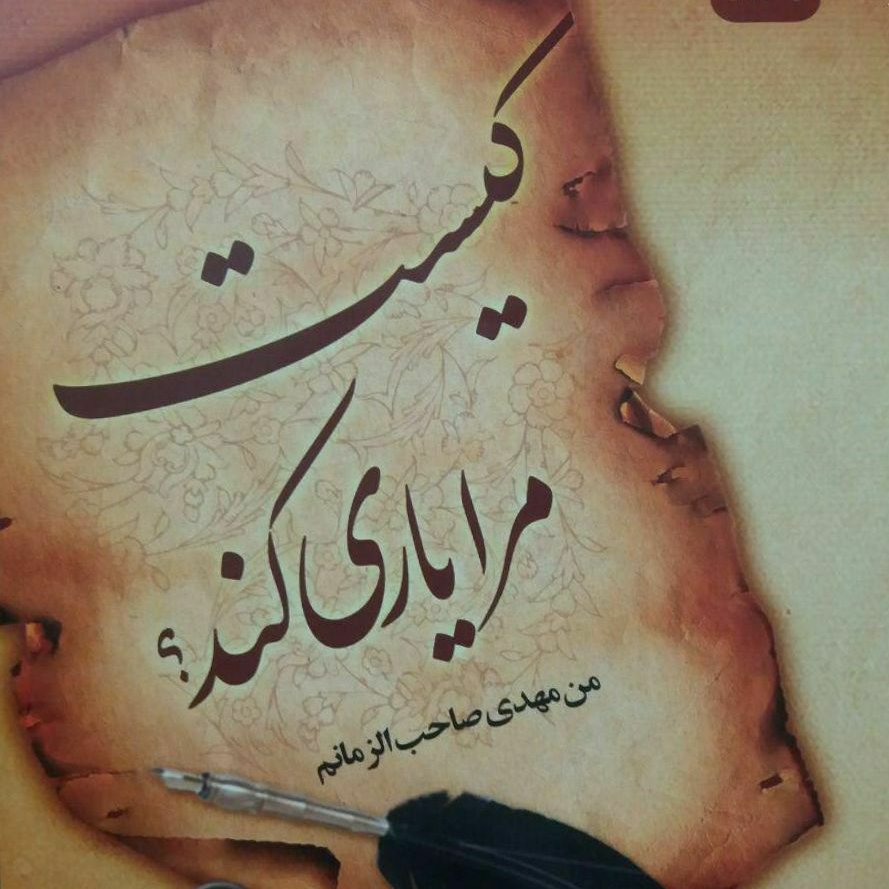 کیست
مرا یاری کند؟
من مهدی صاحب الزمانم